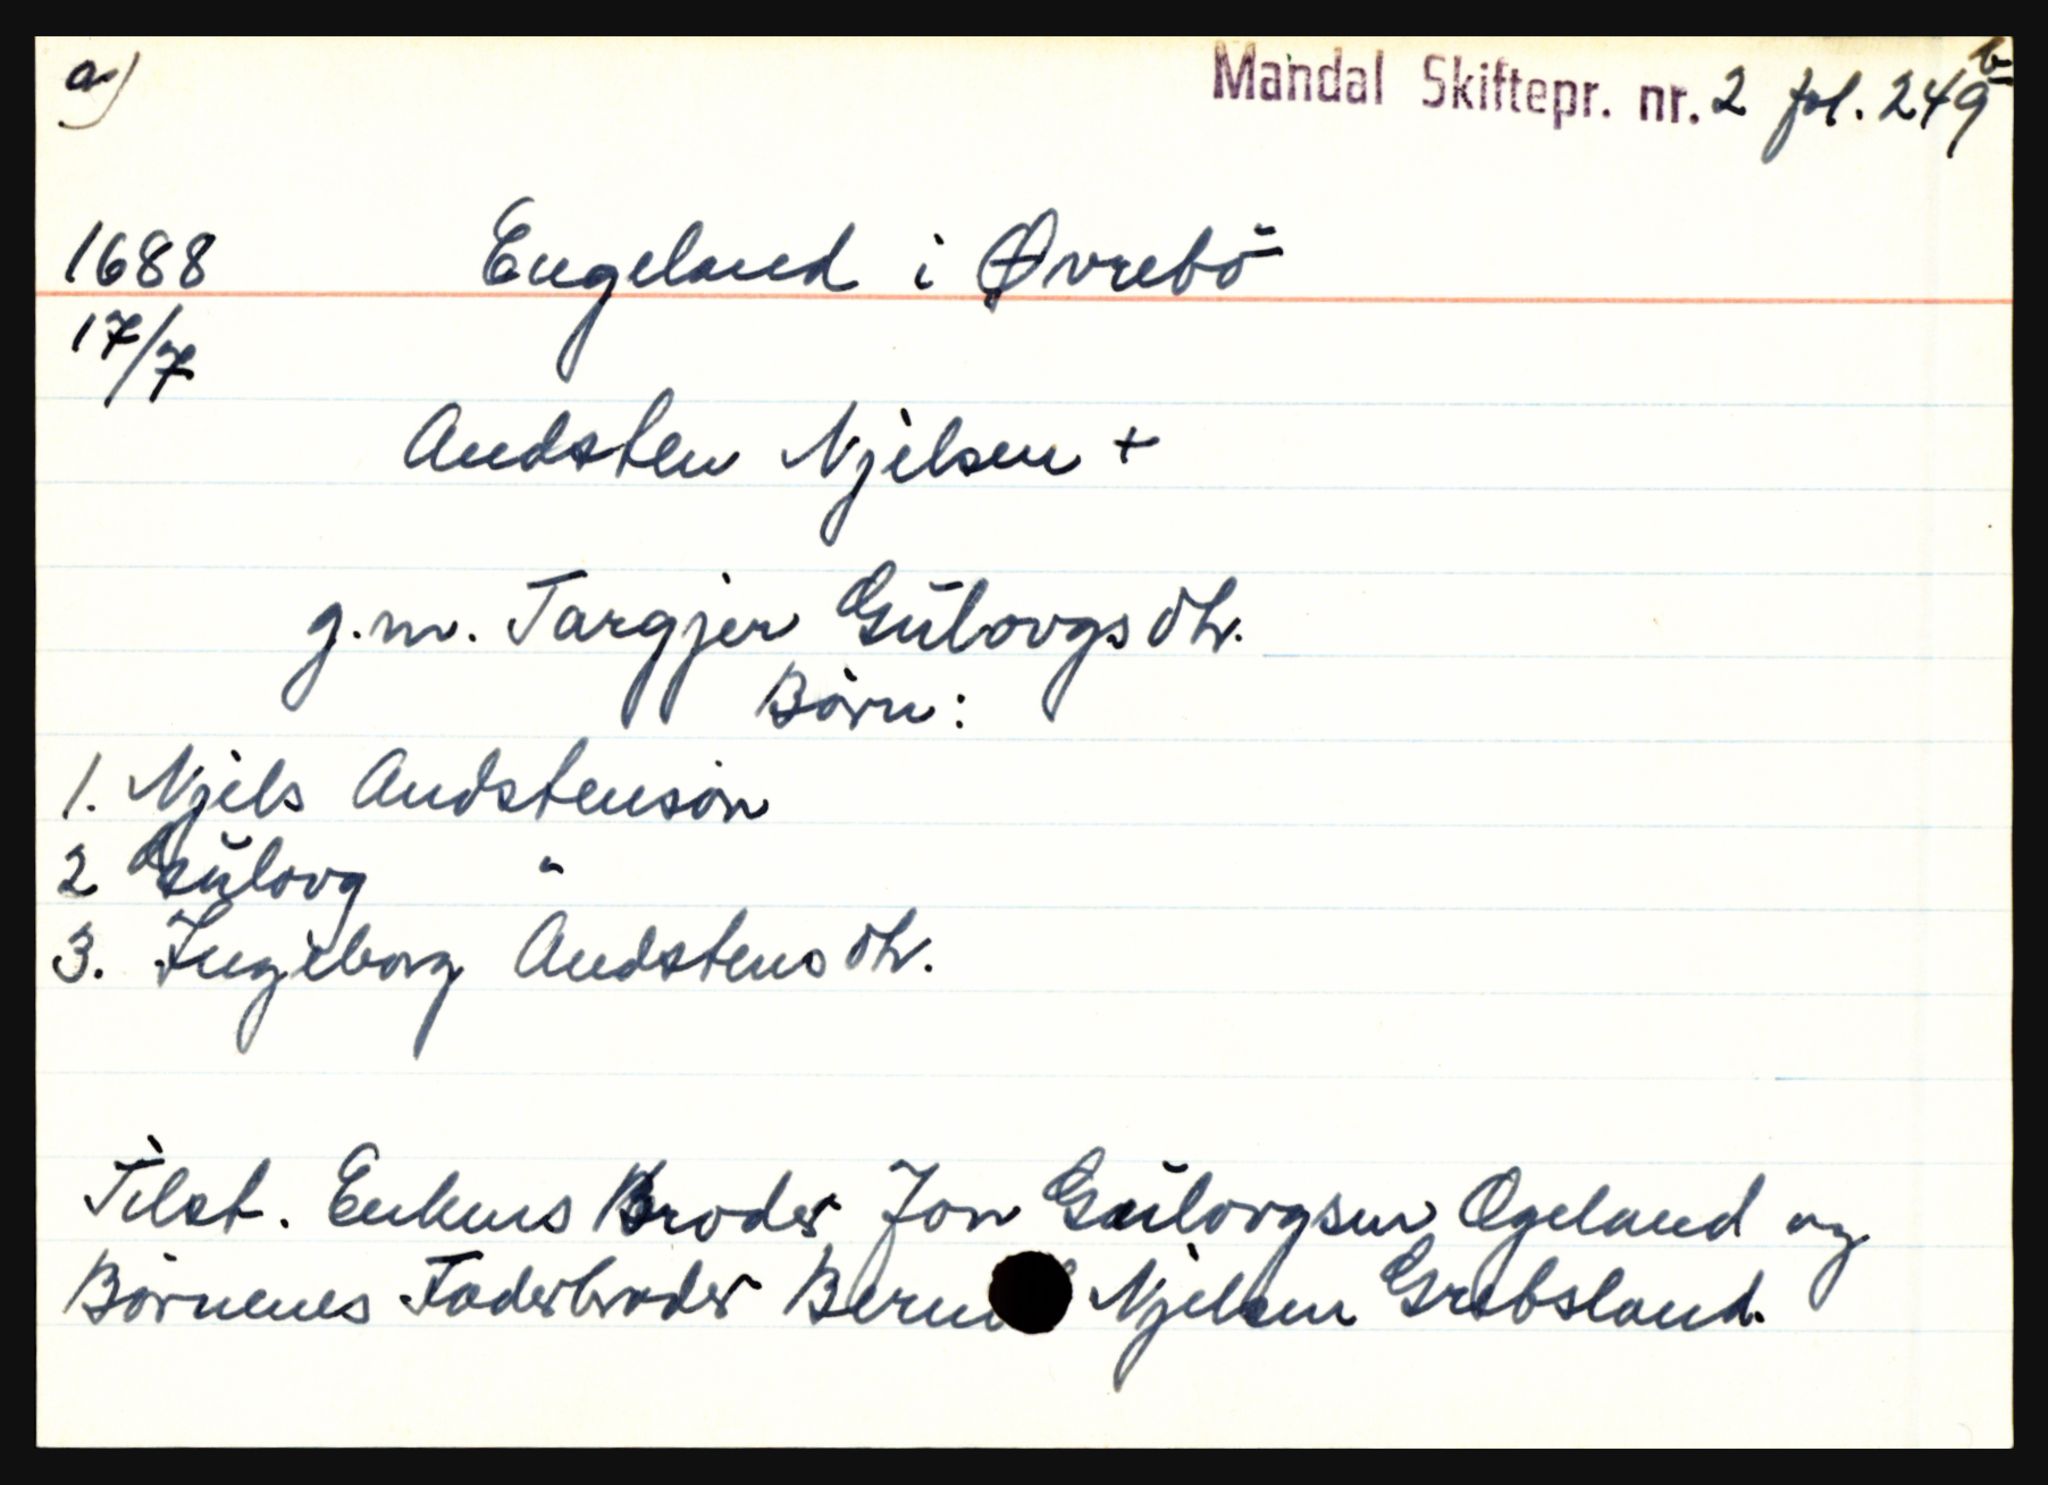 a)
Mandal Skiftepr. nr. 2 fol. 249b
1688 Engeland i Øvrebö
17/7
Andsten Njelsen +
g.m. Targjer Gulovgsdtr.
Børn:
1. Njels Andstensøn
2 Gulovg "
3. Ingeborg Andstensdtr.
Tilst. Enkens Broder Jon Gulovgsen Øgeland og
Børnenes Faderbroder Njelsen Grebsland.